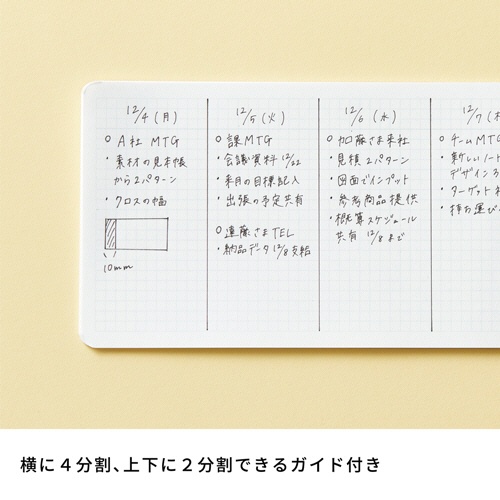 12/4（月）
○ A社 MTG
・素材の見本帳
から2パターン
・クロスの幅
10mm
12/5（火）
○ 課MTG
・会議資料 12/22
・来月の目標記入
・出張の予定共有
○ 遠藤さまTEL
・納品データ 12/8支給
12/6（水）
○ 加藤さま来社
・見積 2パターン
・図面でインプット
・参考商品提供
・概算スケジュール
共有 12/8まで
12/7（木
○ チームMTG
・新しいノート
デザイン
・ターゲット
・持ち運び
横に４分割、上下に２分割できるガイド付き